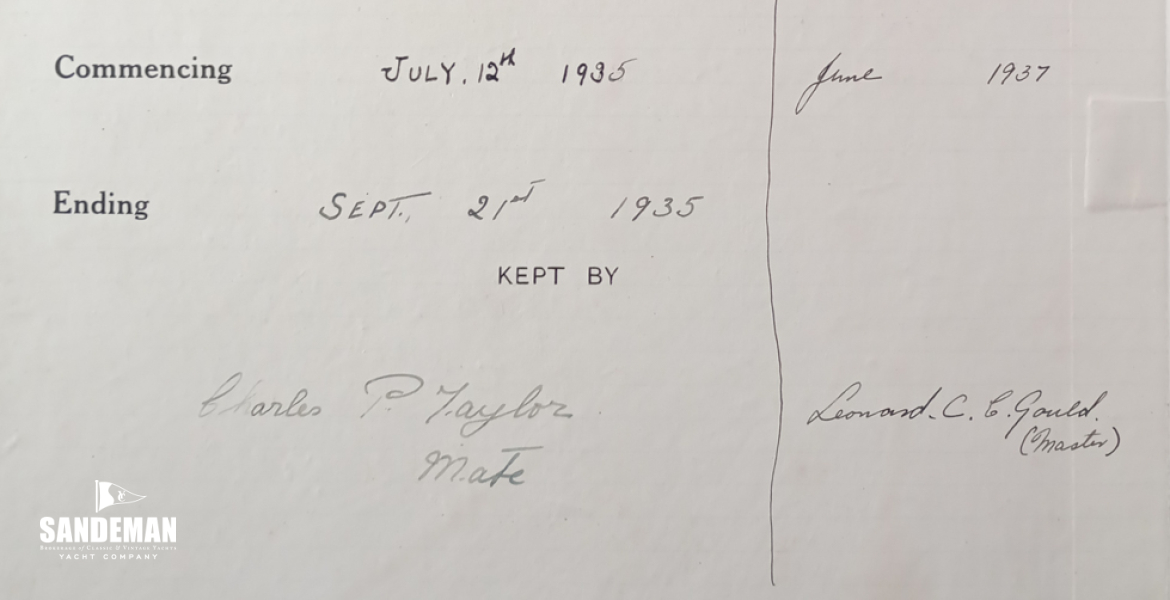 Commencing JULY. 12th 1935 June 1937
Ending SEPT., 21st 1935
KEPT BY
Charles P. Taylor Leonard. C. C. Gould.
Mate (Master)
SANDEMAN
Brokerage of Classic & Vintage Yachts
YACHT COMPANY